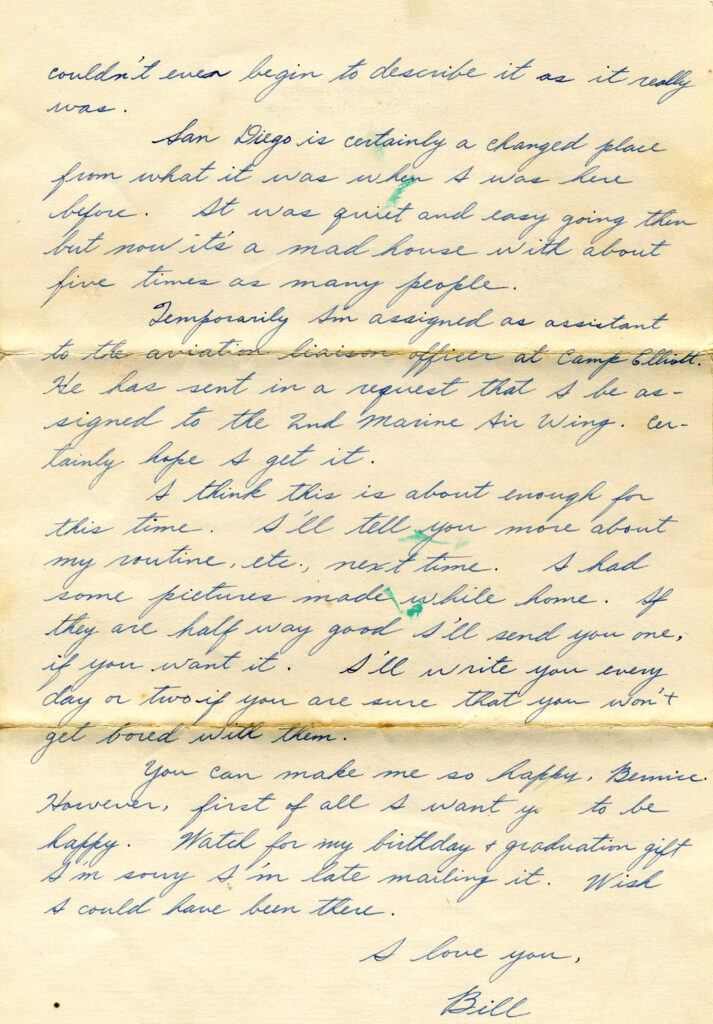 couldn't even begin to describe it as it really
was.
San Diego is certainly a changed place
from what it was when I was here
before. It was quiet and easy going then
but now it's a mad house with about
five times as many people.
Temporarily I'm assigned as assistant
to the aviation liaison officer at Camp Elliott.
He has sent in a request that I be as-
signed to the 2nd Marine Air Wing. Cer-
tainly hope I get it.
I think this is about enough for
this time. I'll tell you more about
my routine, etc., next time. I had
some pictures made while home. If
they are half way good I'll send you one,
if you want it. I'll write you every
day or two if you are sure that you won't
get bored with them.
You can make me so happy, Bernice.
However, first of all I want y to be
happy. Watch for my birthday + graduation gift
I'm sorry I'm late mailing it. Wish
I could have been there.
I love you,
Bill